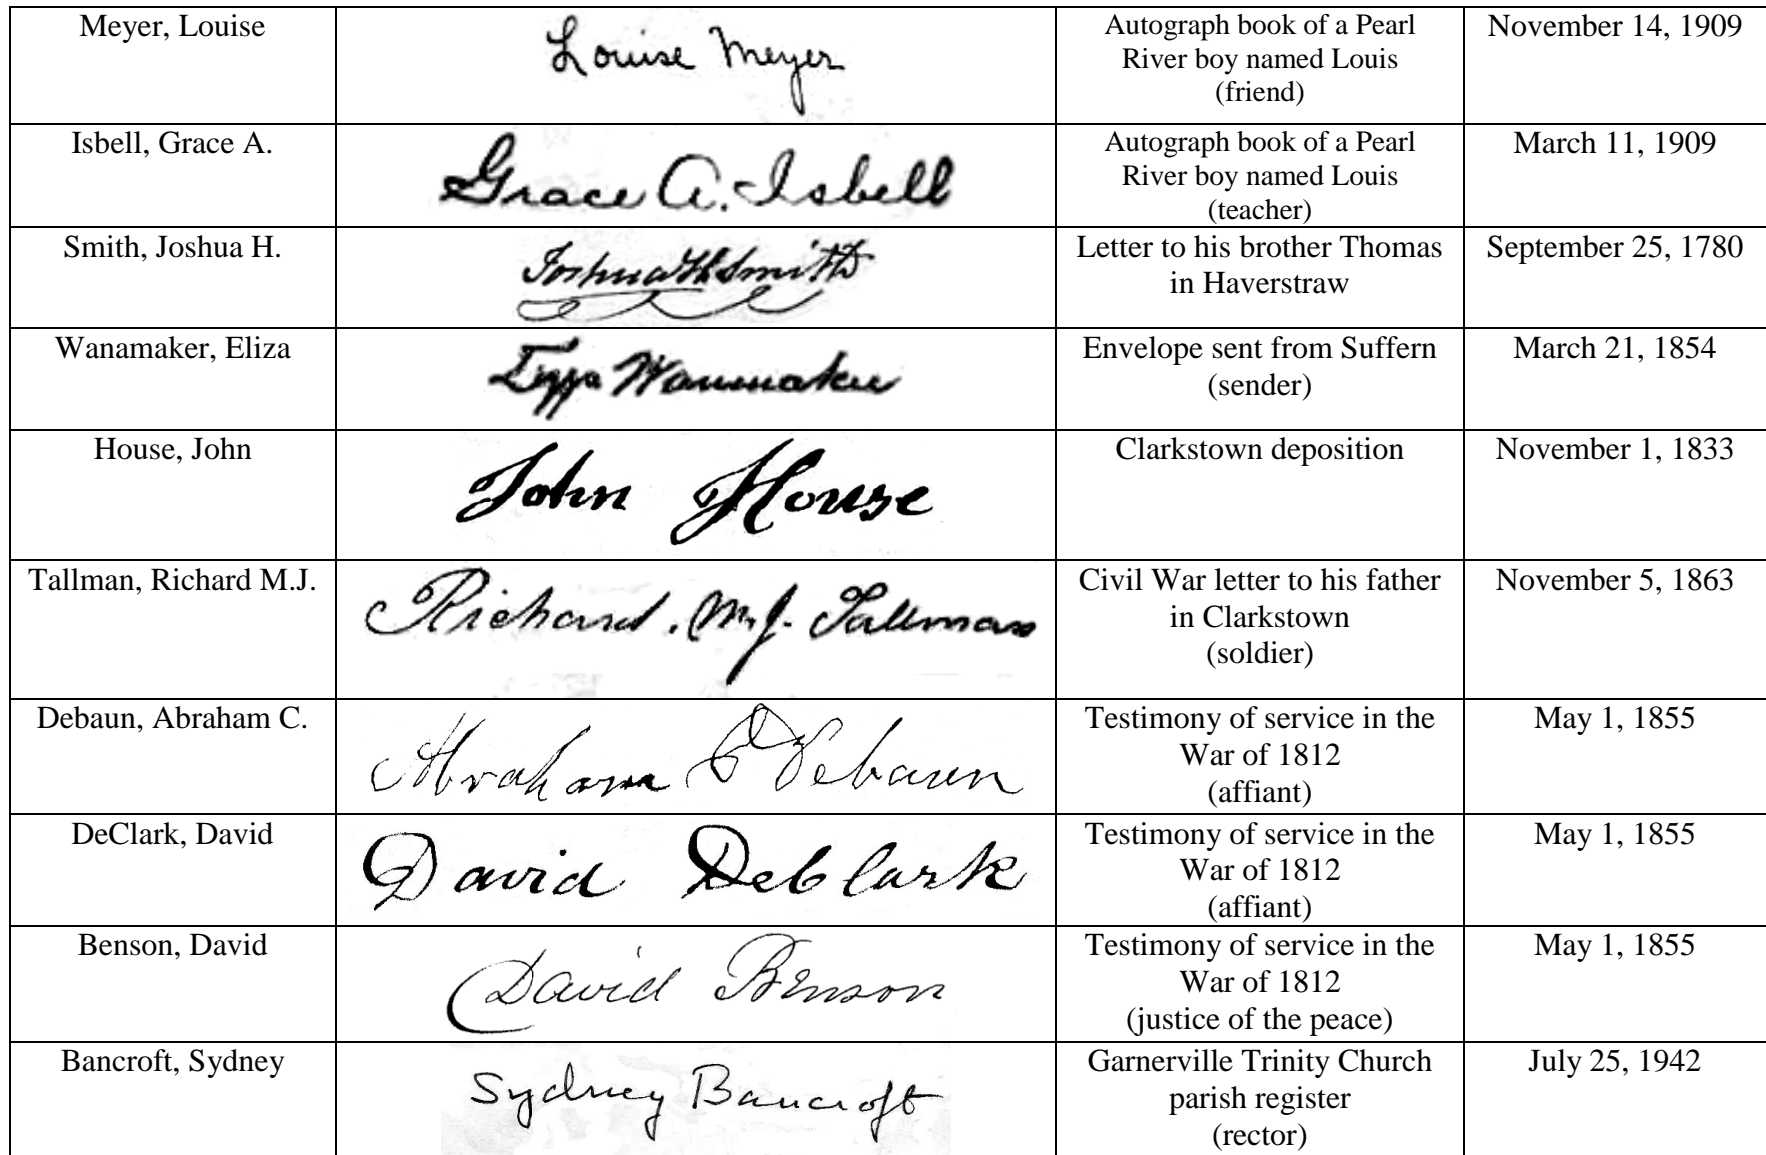 Meyer, Louise
Louise Meyer
Autograph book of a Pearl
River boy named Louis
(friend)
November 14, 1909
Isbell, Grace A.
Grace A. Isbell
Autograph book of a Pearl
River boy named Louis
(teacher)
March 11, 1909
Smith, Joshua H.
Joshua H Smith
Letter to his brother Thomas
in Haverstraw
September 25, 1780
Wanamaker, Eliza
Wanamaker
Envelope sent from Suffern
(sender)
March 21, 1854
House, John
John House
Clarkstown deposition
November 1, 1833
Tallman, Richard M.J.
Richard. M.J. Tallman
Civil War letter to his father
in Clarkstown
(soldier)
November 5, 1863
Debaun, Abraham C.
Abraham C Debaun
Testimony of service in the
War of 1812
(affiant)
May 1, 1855
DeClark, David
David DeClark
Testimony of service in the
War of 1812
(affiant)
May 1, 1855
Benson, David
David Benson
Testimony of service in the
War of 1812
(justice of the peace)
May 1, 1855
Bancroft, Sydney
Sydney Bancroft
Garnerville Trinity Church
parish register
(rector)
July 25, 1942